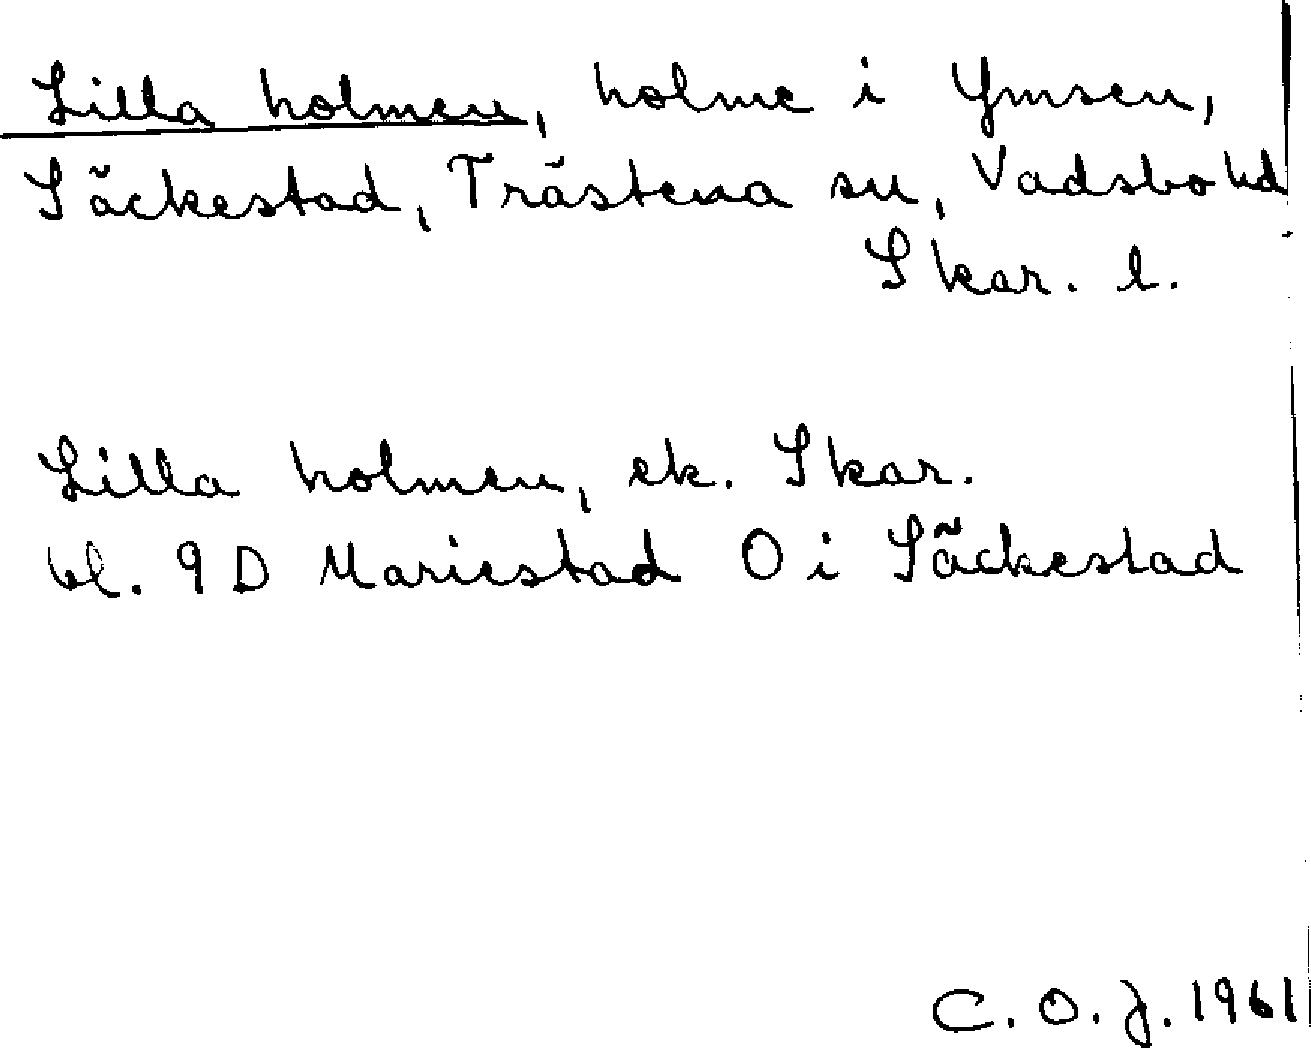 Lilla holmen, holme i Ymsen,
Säckestad, Trästena sn, Vadsbo hd
Skar. l.
Lilla holmen, ek. Skar.
bl. 9 D Mariestad O i Säckestad
C. O. J. 1961